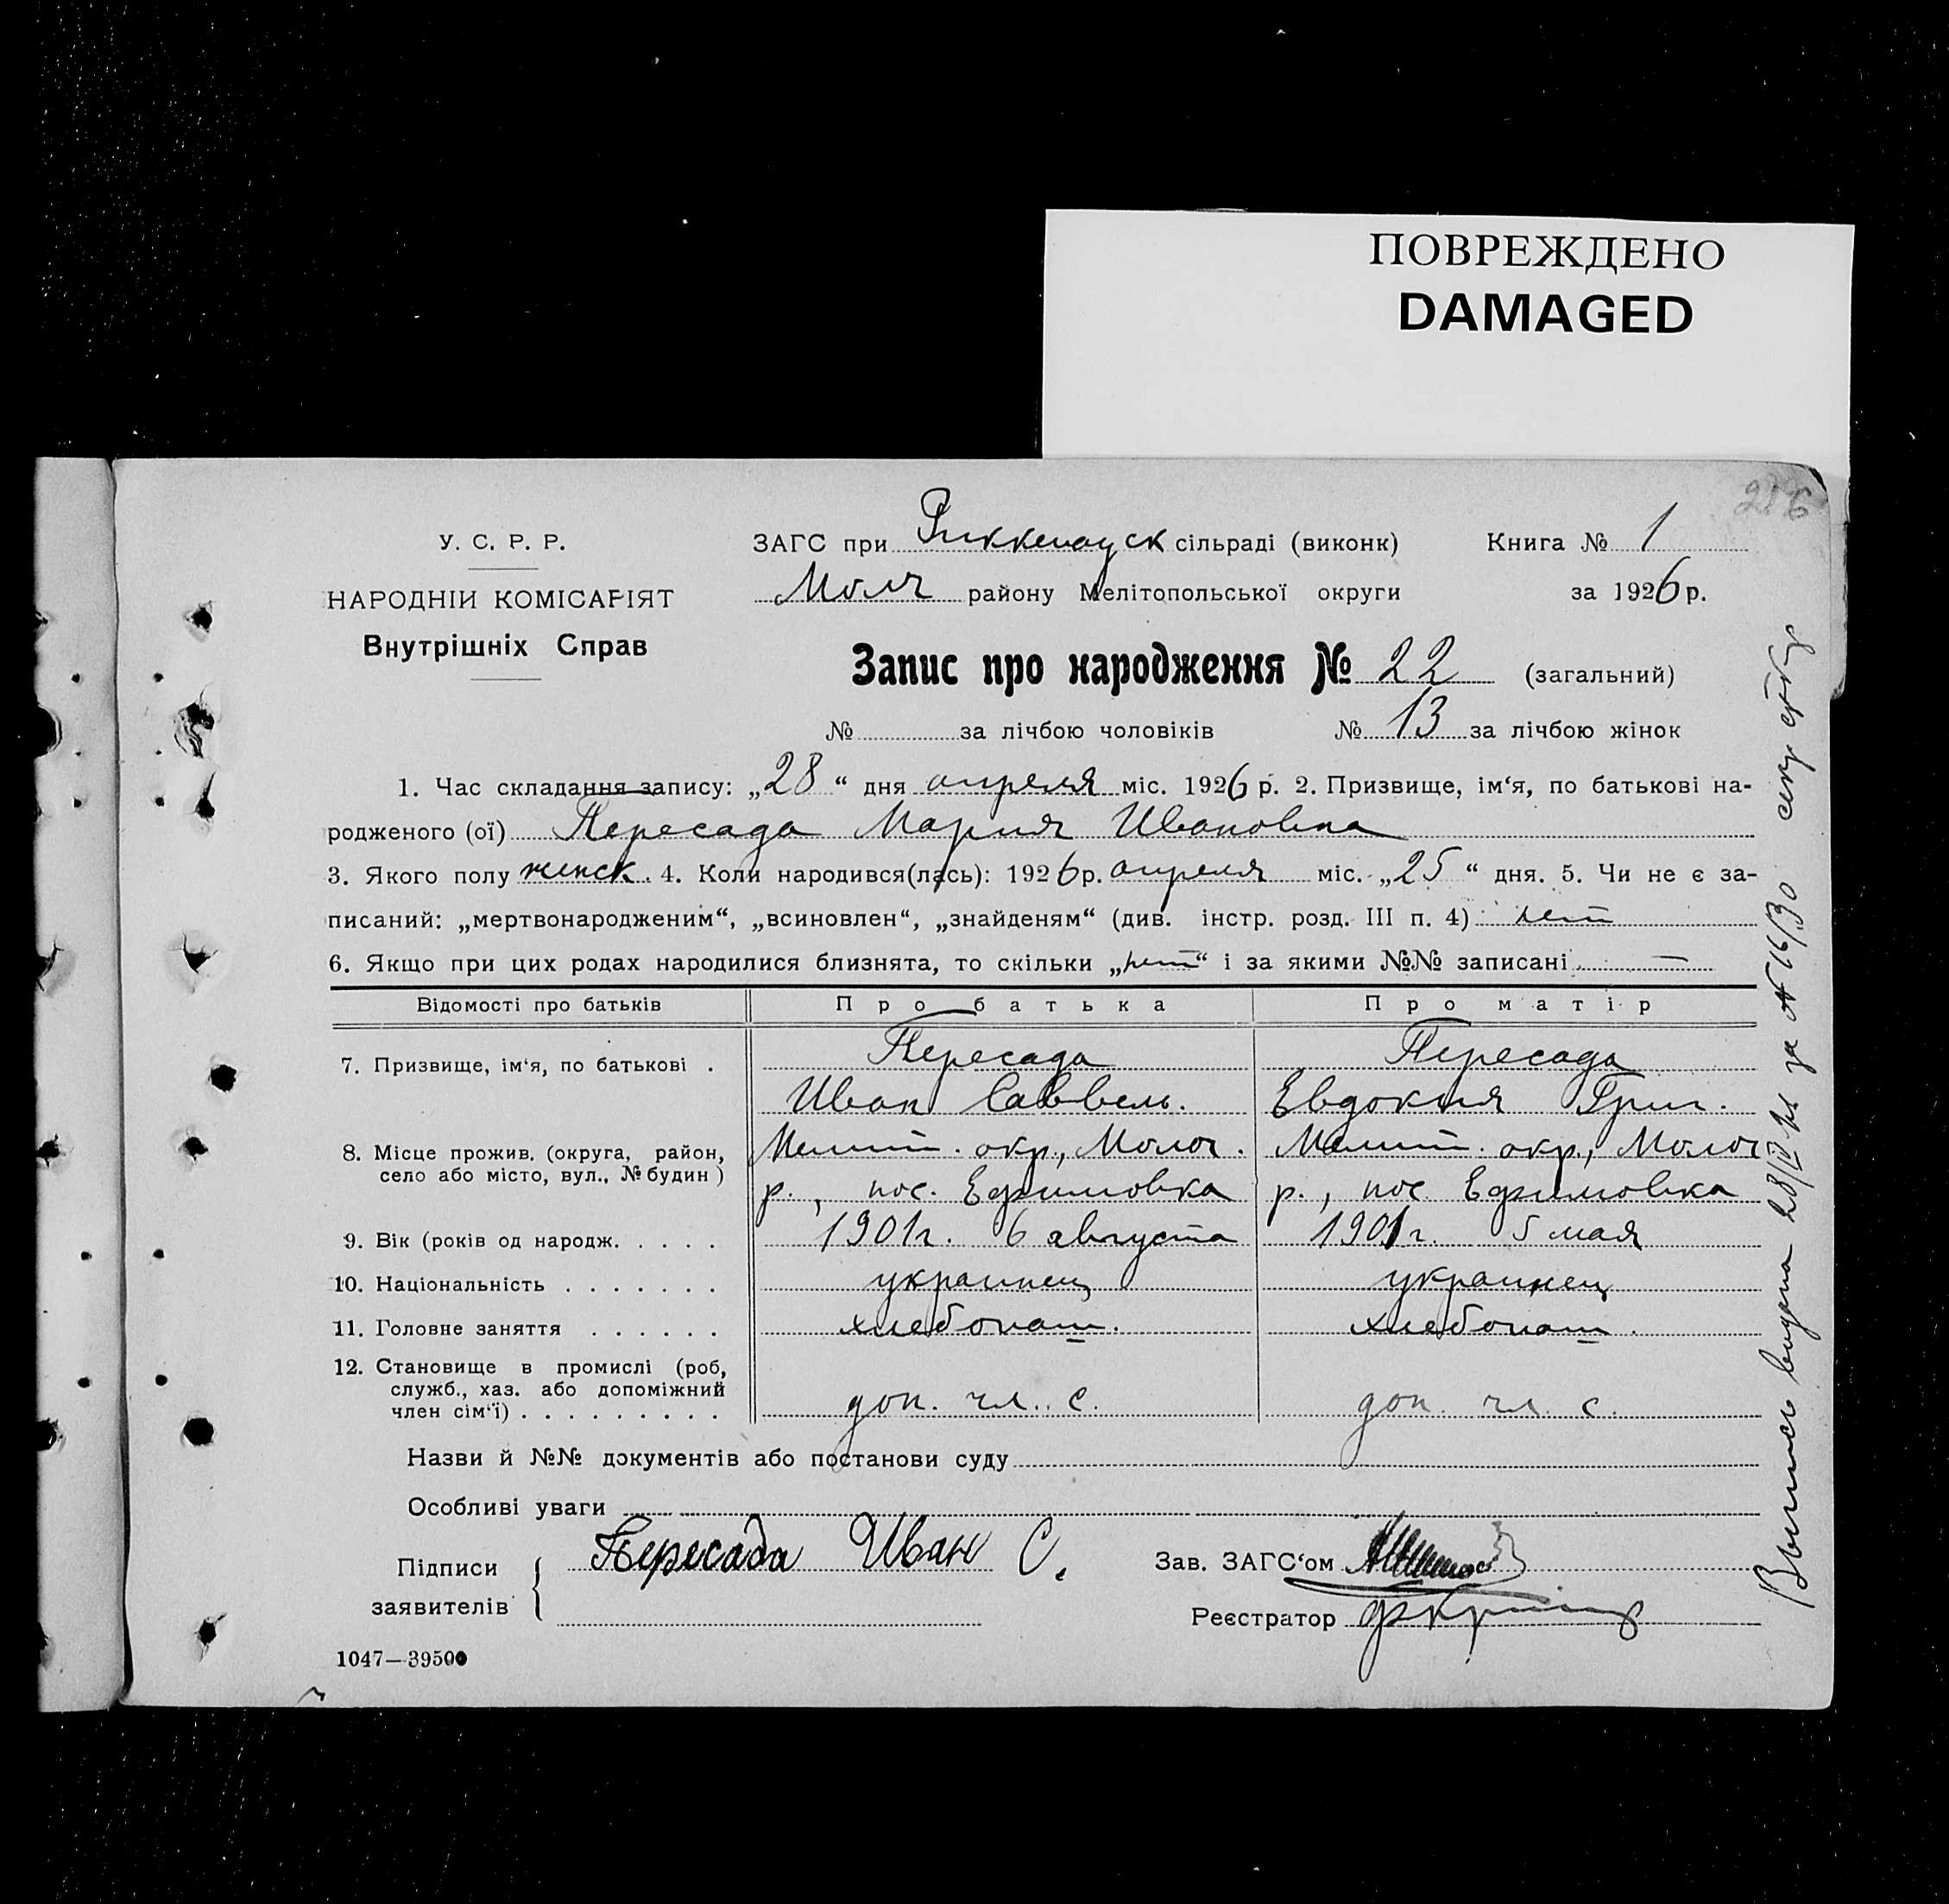 ПОВРЕЖДЕНО
DAMAGED
У. С. Р. Р.
НАРОДНІЙ КОМІСАРІЯТ
Внутрішніх Справ
ЗАГС при Риккенауск сільраді (виконк) Книга № 1
Молч району Мелітопольської округи за 1926 р.
Запис про народження № 22 (загальний)
№ за лічбою чоловіків № 13 за лічбою жінок
1. Час складання запису: „28“ дня апреля міс. 1926 р. 2. Призвище, ім‘я, по батькові на-
родженого (ої) Пересада Мария Ивановна
3. Якого полу женск. 4. Коли народився(лась): 1926 р. апреля міс. „25“ дня. 5. Чи не є за-
писаний: „мертвонародженим“, „всиновлен“, „знайденям“ (див. інстр. розд. III п. 4) нет
6. Якщо при цих родах народилися близнята, то скільки „нет“ і за якими №№ записані —
Відомості про батьків Про батька Про матір
7. Призвище, ім‘я, по батькові . Пересада Пересада
Иван Саввель. Евдокия Григ.
8. Місце прожив. (округа, район, село або місто, вул., № будин) Мелит. окр., Молоч. Мелит. окр., Молоч
р., пос. Ефимовка р., пос Ефимовка
9. Вік (років од народж. . . . . 1901 г. 6 августа 1901 г. 5 мая
10. Національність . . . . . . . украинец украинец
11. Головне заняття . . . . . . хлебопаш. хлебопаш.
12. Становище в промислі (роб,
служб., хаз. або допоміжний
член сім‘ї) . . . . . . . . . доп. чл. с. доп. чл. с.
Назви й №№ документів або постанови суду
Особливі уваги
Підписи заявителів Пересада Иван С.
Зав. ЗАГС‘ом
Реєстратор
1047—39500
Выпись выдана 28/IV 26 за № 66/30